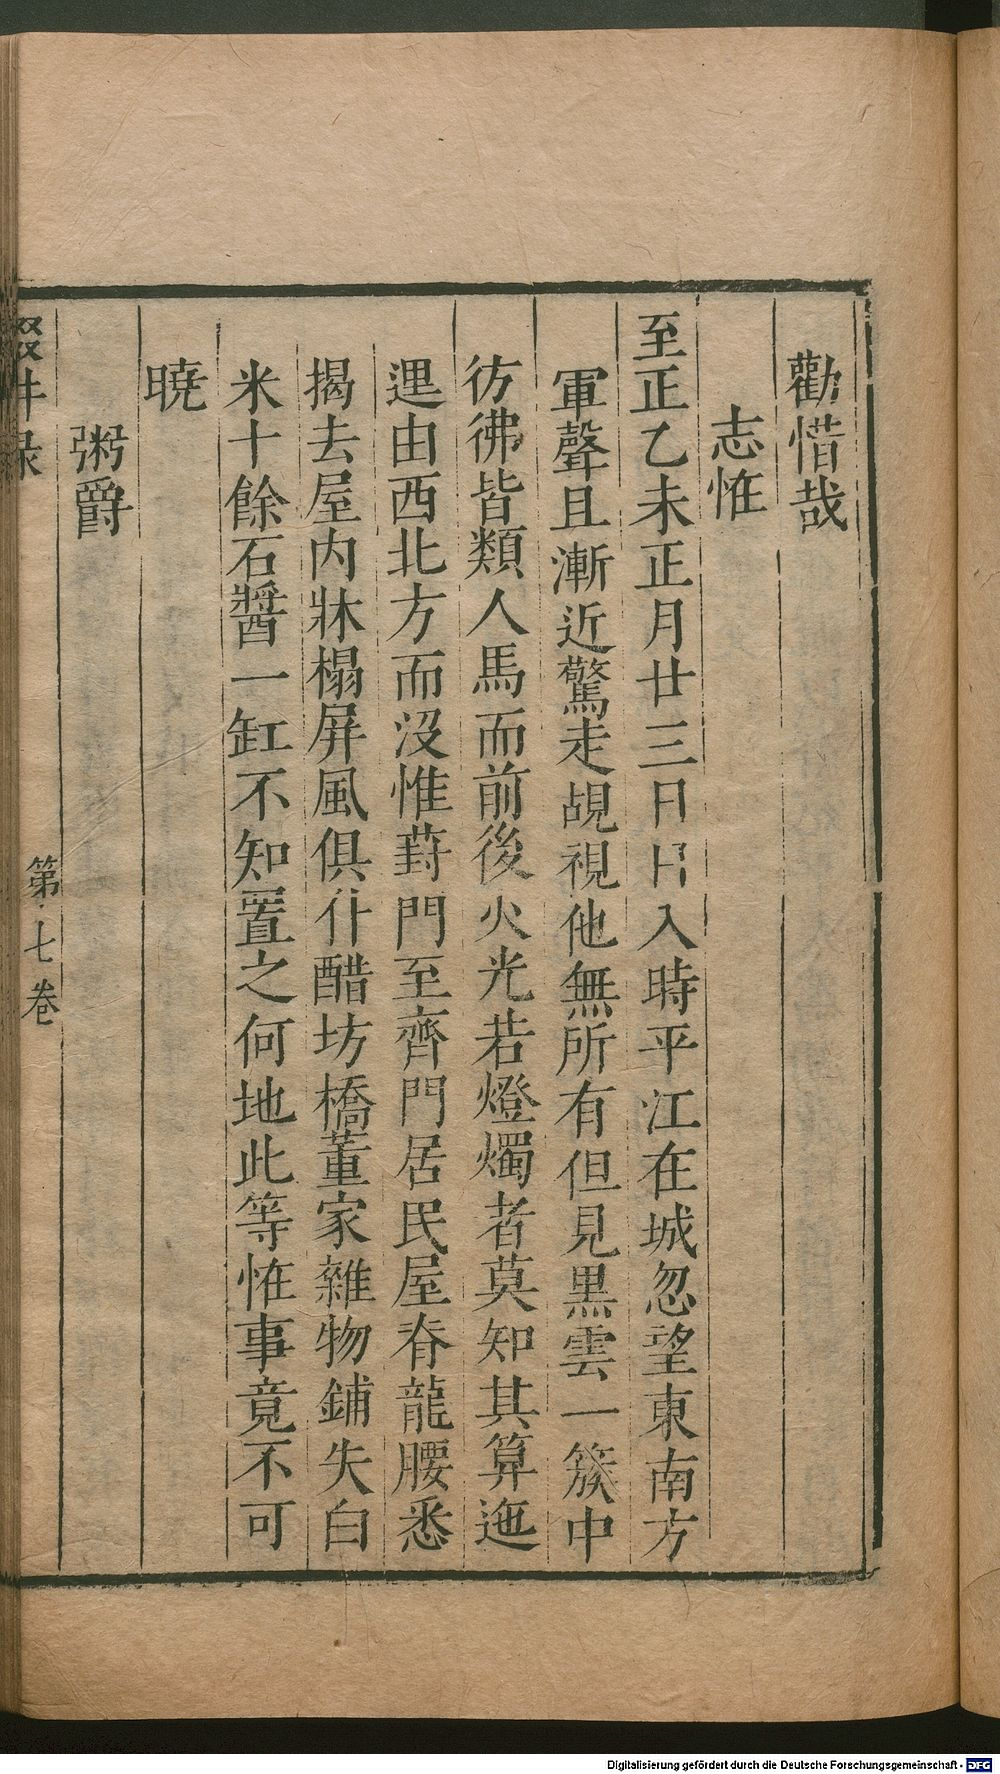 勸惜哉
志恠
至正乙未正月廿三日日入時平江在城忽望東南方
軍聲且漸近驚走覘視他無所有但見黒雲一簇中
彷彿皆類人馬而前後火光若燈燭者莫知其算迤
逞由西北方而没惟葑門至齊門居民屋脊龍腰悉
揭去屋内牀榻屏風俱仆醋坊橋董家雜物鋪失白
米十餘石醬一缸不知置之何地此等恠事竟不可
曉
粥爵
輟耕录
第七卷
Digitalisierung gefördert durch die Deutsche Forschungsgemeinschaft - DFG